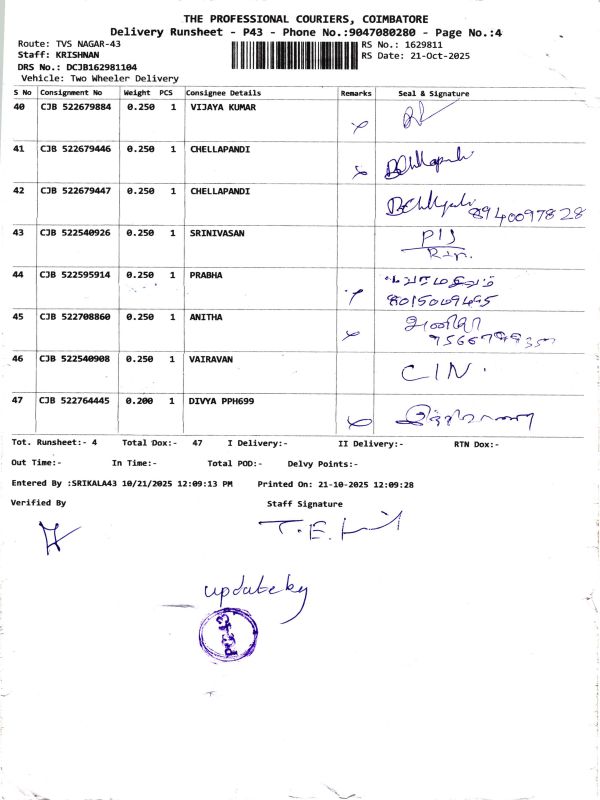 THE PROFESSIONAL COURIERS, COIMBATORE
Delivery Runsheet - P43 - Phone No.:9047080280 - Page No.:4
Route: TVS NAGAR-43
RS No.: 1629811
Staff: KRISHNAN
RS Date: 21-Oct-2025
DRS No.: DCJB162981104
Vehicle: Two Wheeler Delivery
S No Consignment No Weight PCS Consignee Details Remarks Seal & Signature
40 CJB 522679884 0.250 1 VIJAYA KUMAR
41 CJB 522679446 0.250 1 CHELLAPANDI
42 CJB 522679447 0.250 1 CHELLAPANDI
8940097828
43 CJB 522540926 0.250 1 SRINIVASAN
44 CJB 522595914 0.250 1 PRABHA
45 CJB 522708860 0.250 1 ANITHA
46 CJB 522540908 0.250 1 VAIRAVAN
CIN.
47 CJB 522764445 0.200 1 DIVYA PPH699
Tot. Runsheet:- 4 Total Dox:- 47 I Delivery:- II Delivery:- RTN Dox:-
Out Time:- In Time:- Total POD:- Delvy Points:-
Entered By :SRIKALA43 10/21/2025 12:09:13 PM Printed On: 21-10-2025 12:09:28
Verified By Staff Signature
update by